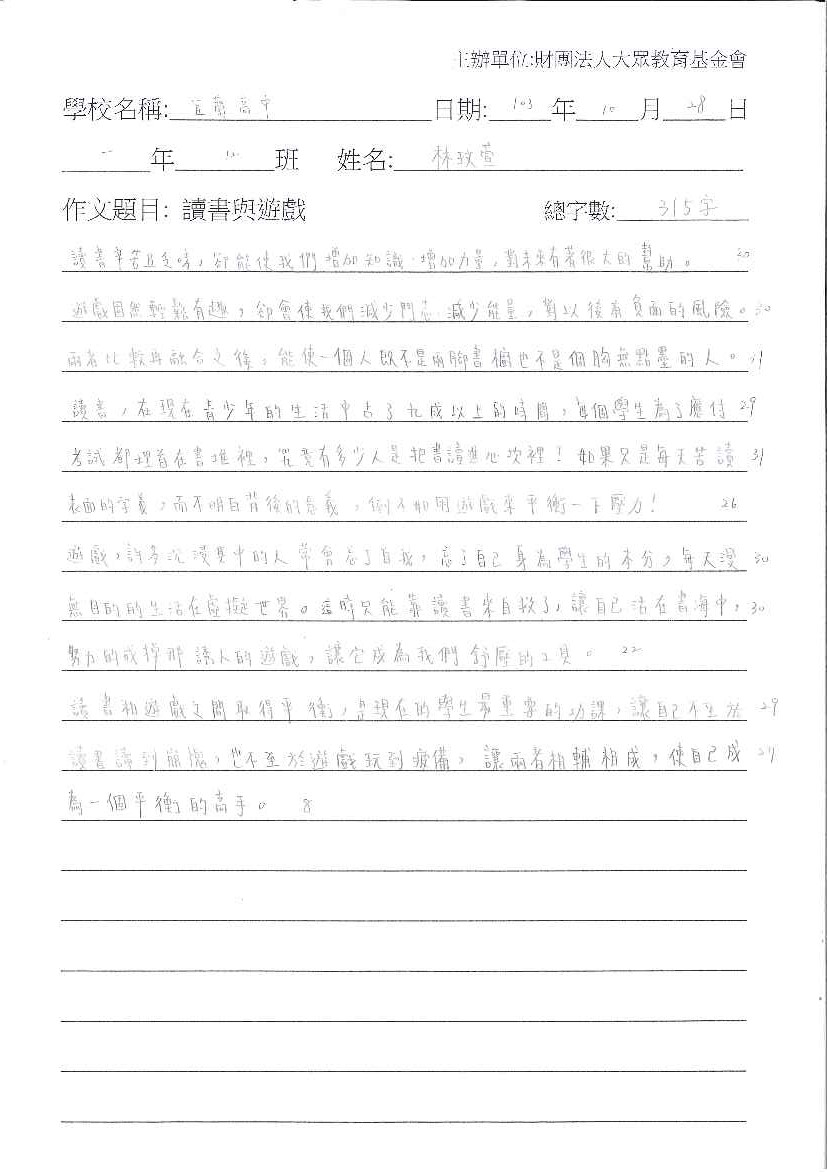 主辦單位:財團法人大眾教育基金會
學校名稱: 宜蘭高中 日期: 103 年 10 月 28 日
一 年 10 班 姓名: 林玟萱
作文題目: 讀書與遊戲 總字數: 315字
讀書辛苦且乏味，卻能使我們增加知識、增加力量，對未來有著很大的幫助。 20
遊戲固然輕鬆有趣，卻會使我們減少鬥志、減少能量，對以後有負面的風險。 30
兩者比較再融合之後，能使一個人既不是兩腳書櫥也不是個胸無點墨的人。 31
讀書，在現在青少年的生活中占了九成以上的時間，每個學生為了應付 29
考試都埋首在書堆裡，究竟有多少人是把書讀進心坎裡！如果只是每天苦讀 31
表面的字義，而不明白背後的意義，倒不如用遊戲來平衡一下壓力！ 26
遊戲，許多沉浸其中的人常會忘了自我，忘了自己身為學生的本分，每天漫 30
無目的的生活在虛擬世界。這時只能靠讀書來自救了，讓自己活在書海中， 30
努力的戒掉那誘人的遊戲，讓它成為我們舒壓的工具。 22
讀書和遊戲之間取得平衡，是現在的學生最重要的功課，讓自己不至於 29
讀書讀到崩壞，也不至於遊戲玩到疲憊，讓兩者相輔相成，使自己成 27
為一個平衡的高手。 8